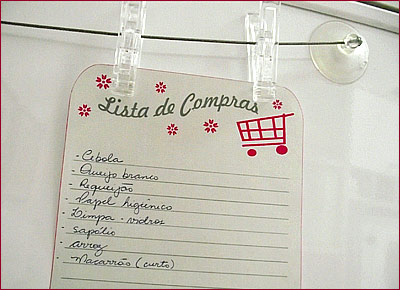 Lista de Compras
- Cebola
- Queijo branco
- Requeijão
- Papel higiênico
- Limpa-vidros
- sapólio
- arroz
- Macarrão (curto)